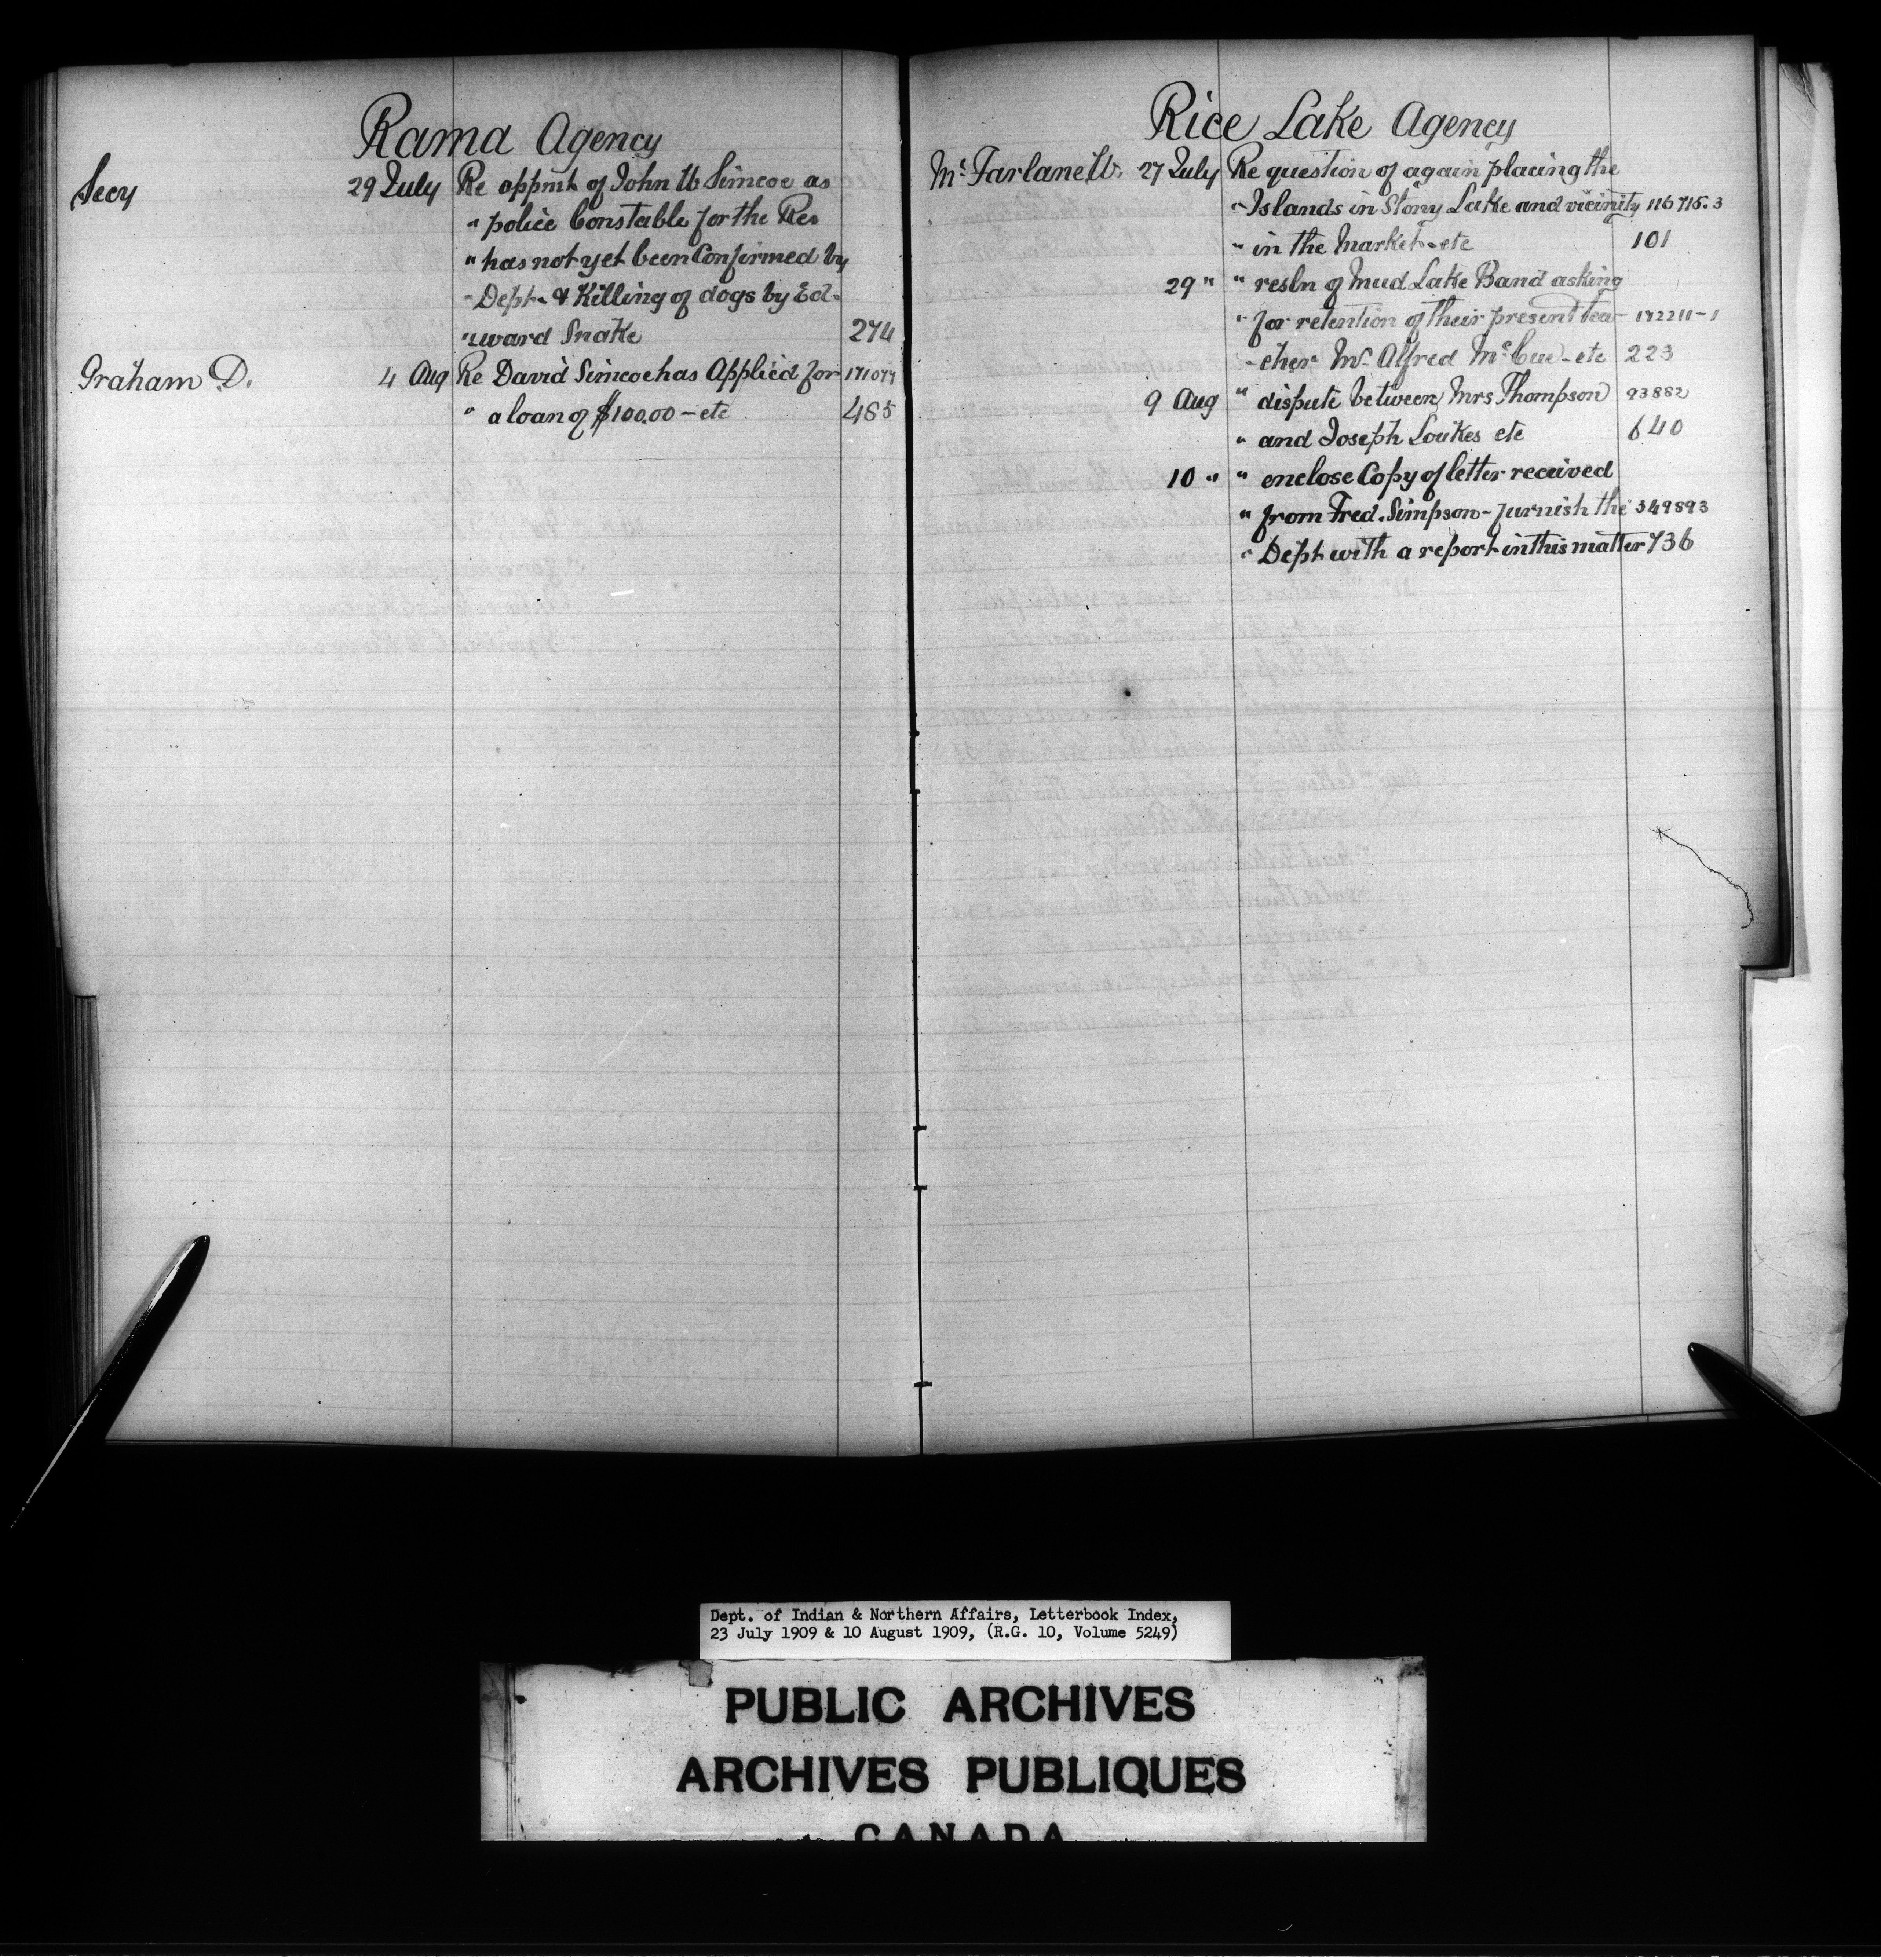 Rama Agency
Secy 29 July Re appmt of John W Simcoe as
" police Constable for the Res
" has not yet been Confirmed by
" Dept. & Killing of dogs by Ed-
" ward Snake 274
Graham D. 4 Aug Re David Simcoe has Applied for 171077
" a loan of $100.00 - etc 485
Rice Lake Agency
McFarlane W. 27 July Re question of again placing the
" Islands in Stony Lake and vicinity 116715.3
" in the Market - etc 101
29 " " resln of Mud Lake Band asking
" for retention of their present tea- 172211-1
- cher Mr. Alfred McCue - etc 223
9 Aug " dispute between Mrs Thompson 93882
" and Joseph Loukes etc 640
10 " " enclose Copy of letter received
" from Fred. Simpson - furnish the 349893
" Dept with a report in this matter 736
Dept. of Indian & Northern Affairs, Letterbook Index,
23 July 1909 & 10 August 1909, (R.G. 10, Volume 5249)
PUBLIC ARCHIVES
ARCHIVES PUBLIQUES
CANADA